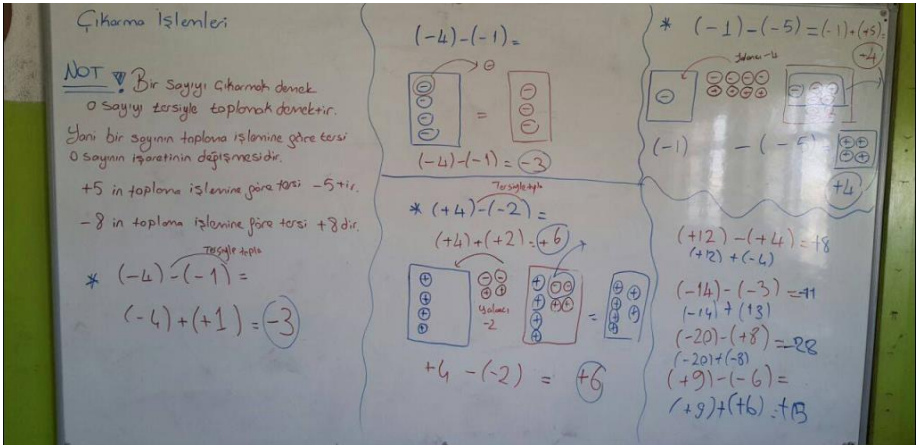 Çıkarma İşlemleri
NOT ! Bir sayıyı çıkarmak demek
o sayıyı tersiyle toplamak demektir.
Yani bir sayının toplama işlemine göre tersi
o sayının işaretinin değişmesidir.
+5 in toplama işlemine göre tersi -5tir.
-8 in toplama işlemine göre tersi +8dir.
Tersiyle topla
* (-4)-(-1)=
(-4)+(+1)=-3
(-4)-(-1)=
=
(-4)-(-1)=-3
Tersiyle topla
* (+4)-(-2)=
(+4)+(+2)=+6
Yalancı
-2
=
+4 -(-2) = +6
* (-1)-(-5)=(-1)+(+5)=
+4
Yalancı -4
(-1) -(-5)
+4
(+12)-(+4)=+8
(+12)+(-4)
(-14)-(-3)=-11
(-14)+(+3)
(-20)-(+8)=-28
(-20)+(-8)
(+9)-(-6)=
(+9)+(+6)=+15